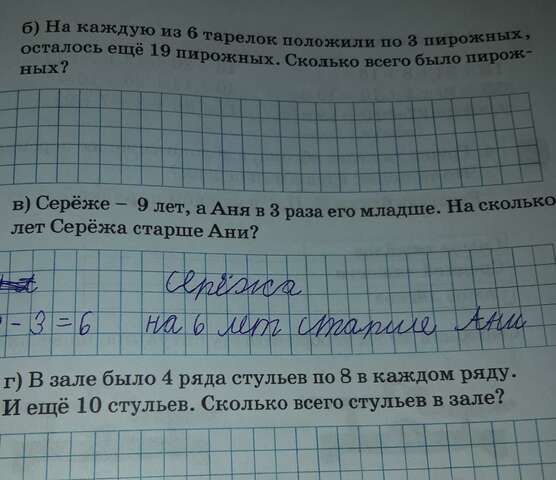 б) На каждую из 6 тарелок положили по 3 пирожных,
осталось ещё 19 пирожных. Сколько всего было пирож-
ных?
в) Серёже – 9 лет, а Аня в 3 раза его младше. На сколько
лет Серёжа старше Ани?
Серёжа
- 3 = 6 на 6 лет старше Ани
г) В зале было 4 ряда стульев по 8 в каждом ряду.
И ещё 10 стульев. Сколько всего стульев в зале?